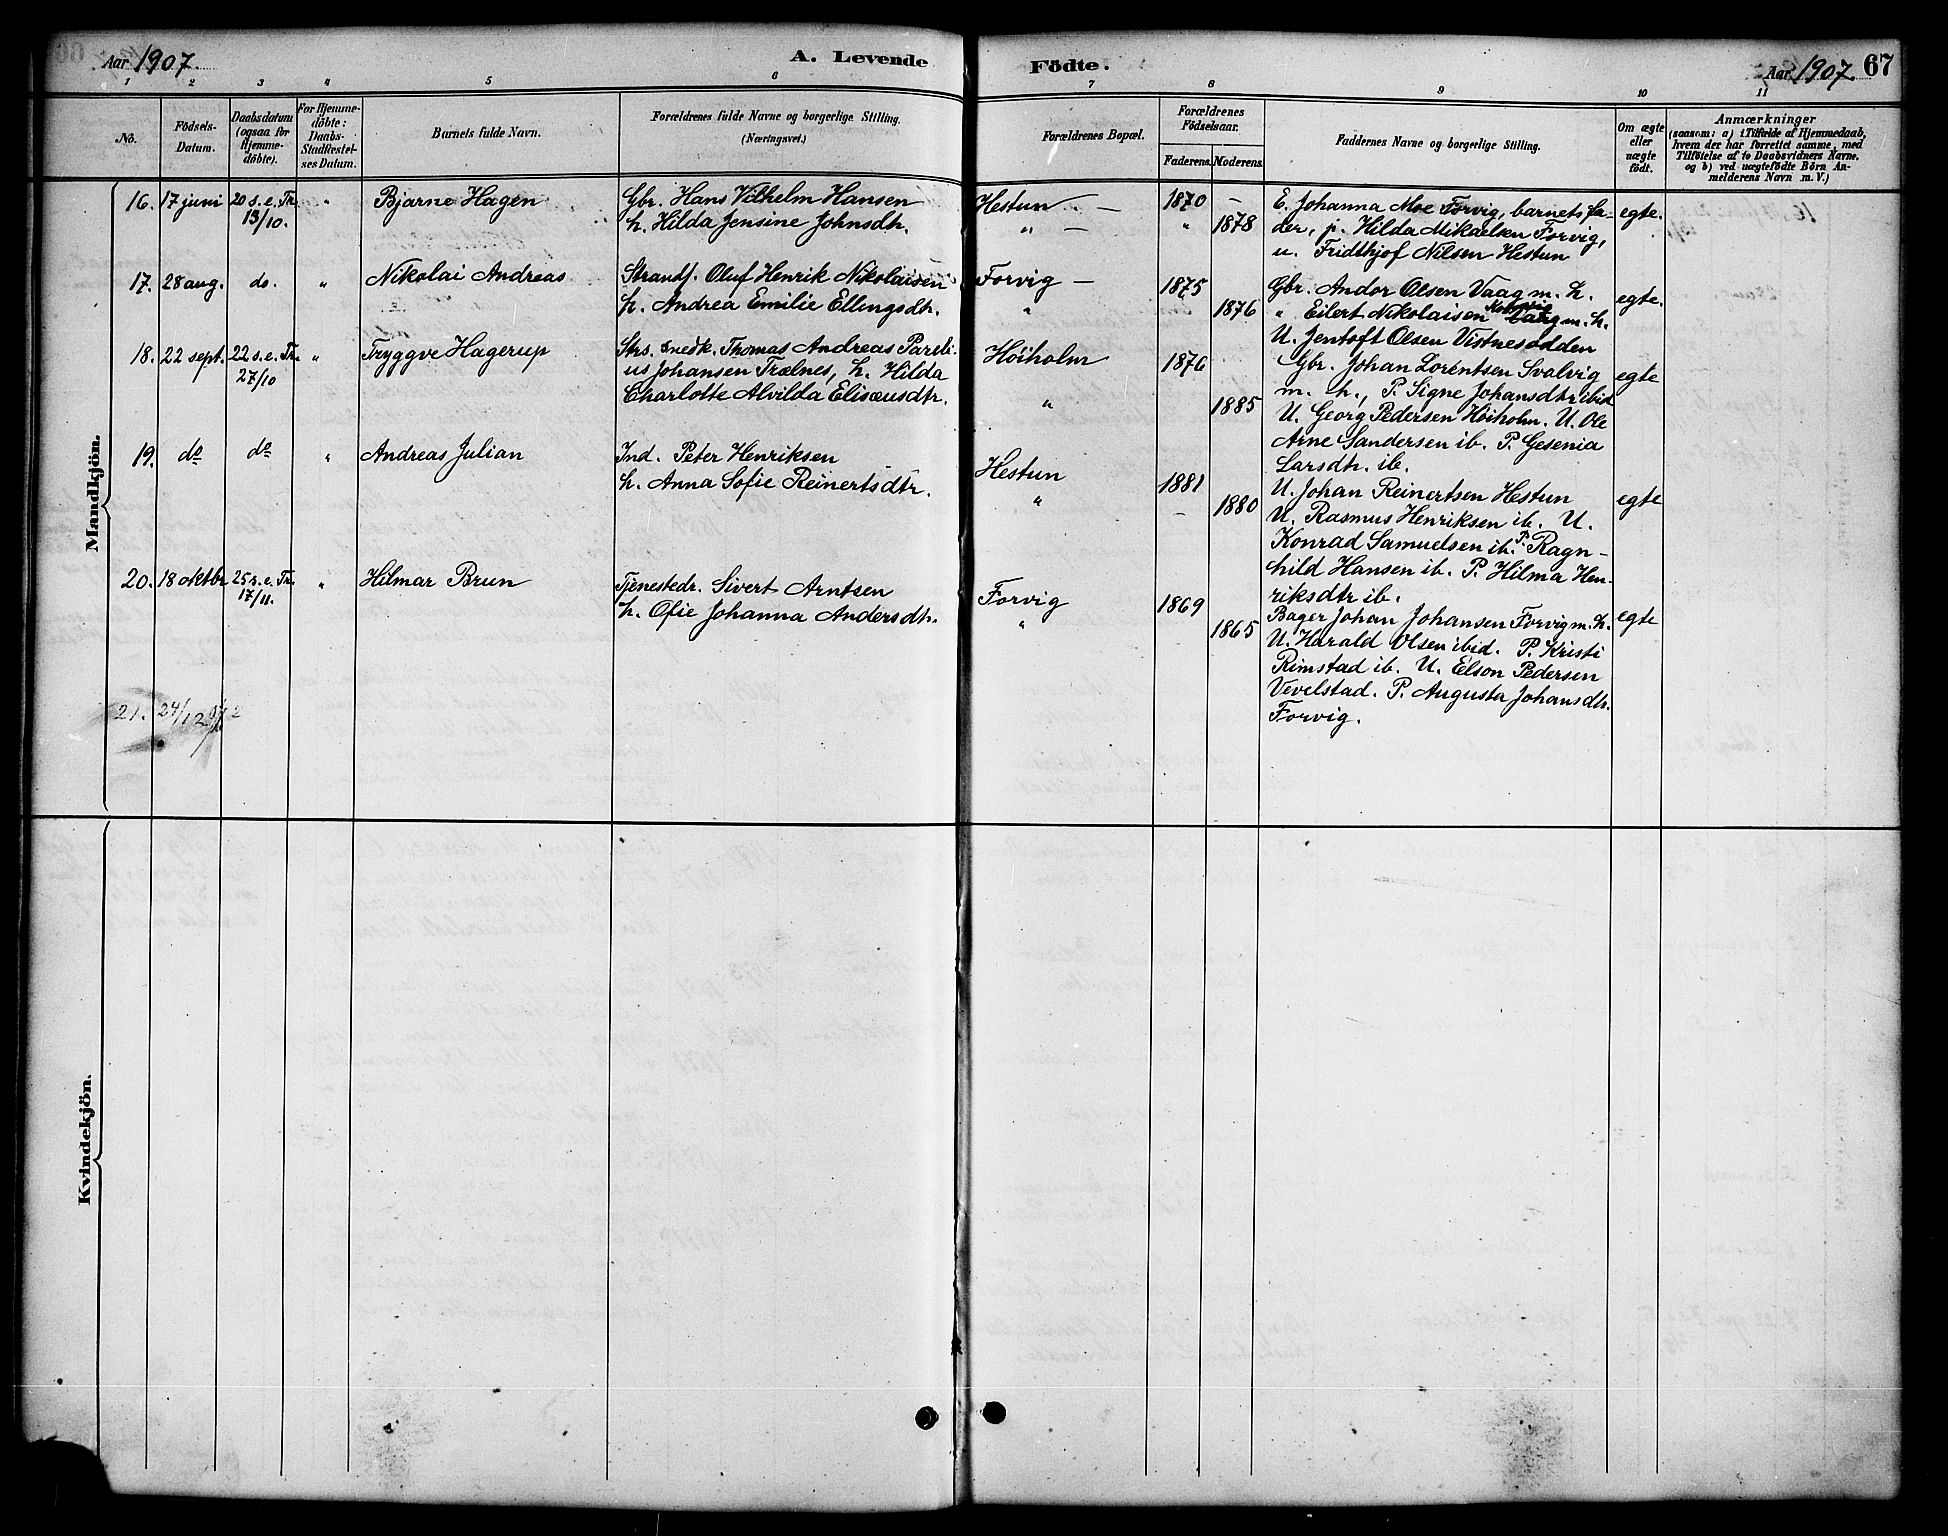 Aar 1907. A. Levende Födte. Aar 1907. 67
1 2 3 4 5 6 7 8 9 10 11
No. Födsels-Datum. Daabsdatum (ogsaa for Hjemme-döbte). For Hjemme-döbte: Daabs-Stadfæstel-ses Datum. Barnets fulde Navn. Forældrenes fulde Navne og borgerlige Stilling. (Næringsvei.) Forældrenes Bopæl. Forældrenes Födselsaar. Faderens. Moderens. Faddernes Navne og borgerlige Stilling. Om ægte eller uægte födt.
Anmærkninger
(saasom: a) i Tilfælde af Hjemmedaab,
hvem der har forrettet samme, med
Tilföielse af to Daabsvidners Navne,
og b) ved uægtefödte Börn An-
melderens Navn m. V.)
Mandkjön.
16. 17 juni 20 s. e. Tr. 13/10. " Bjarne Hagen
Gbr. Hans Vilhelm Hansen
h. Hilda Jensine Johnsdtr.
Hestun — 1870 —
" — " 1878
E. Johanna Moe Forvig, barnets fa-
der, p. Hilda Mikaelsen Forvig,
u. Fridthjof Nilsen Hestun
egte.
17. 28 aug. do. " Nikolai Andreas
Strandf. Oluf Henrik Nikolaisen
h. Andrea Emilie Ellingsdtr.
Forvig — 1875
" 1876
Gbr. Andor Olsen Vaag m. h.
" Eilert Nikolaisen m. h.
U. Jentoft Olsen Vistnesodden
egte.
18. 22 sept. 22 s. e. Tr. 27/10 " Tryggve Hagerup
Strs. snedk. Thomas Andreas Pareli-
us Johansen Trælnes, h. Hilda
Charlotte Alvilda Elisæusdtr.
Höiholm 1876
" 1885
Gbr. Johan Lorentsen Svalvig
m. h., P. Signe Johansdtr ibid
U. Georg Pedersen Höiholm. U. Ole
Arne Sandersen ib. P. Gesenia
Larsdtr. ib.
egte
19. do do " Andreas Julian
Ind. Peter Henriksen
h. Anna Sofie Reinertsdtr.
Hestun 1881
" — 1880
U. Johan Reinertsen Hestun
U. Rasmus Henriksen ib. U.
Konrad Samuelsen ib. P. Ragn-
hild Hansen ib. P. Hilma Hen-
riksdtr ib.
egte
20. 18 oktbr 25 s. e. Tr. 17/11. " Hilmar Brun
Tjenestedr. Sivert Arntsen
h. Ofie Johanna Andersdtr.
Forvig 1869
" 1865
Bager Johan Johansen Forvig m. h.
U. Harald Olsen ibid. P. Kristi
Rimstad ib. U. Elson Pedersen
Vevelstad. P. Augusta Johansdtr.
Forvig.
egte
21. 24/12
Kvindekjön.